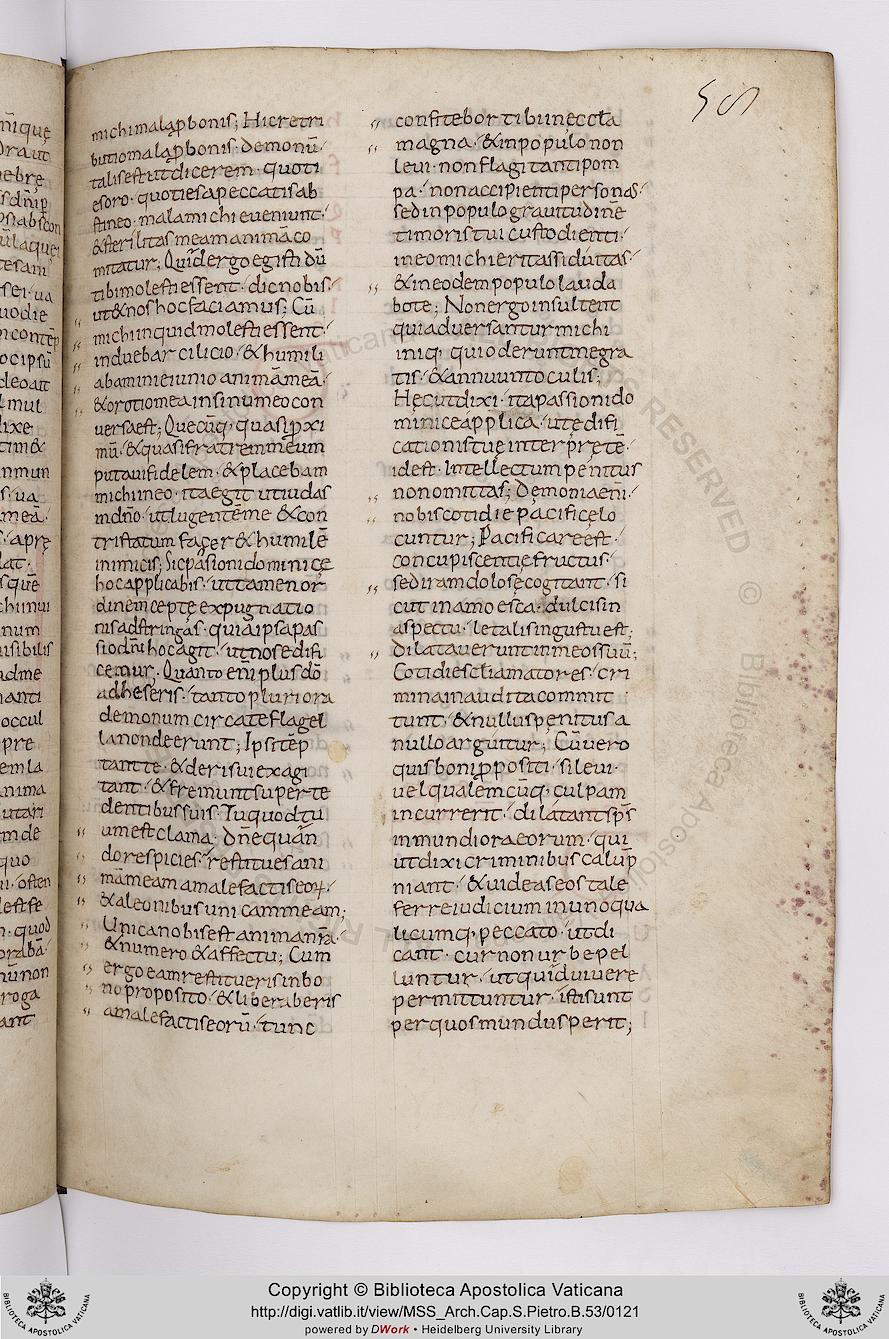 58
michi mala p̄ bonis; Hic retri
butio mala p̄ bonis · demonū ·
talis est ut dicerem · quoti
es oro · quoties a peccatis ab
stineo · mala michi eveniunt ·
& sterilitas meam animā co
mitatur; Quid ergo egisti dū
tibi molesti essent · dic nobis ·
ut & nos hoc faciamus; Cū
michi inquid molesti essent ·
induebar cilicio · & humili
abam in ieiunio animā meā ·
& orotio mea in sinu meo con
versa est; Quecūq; quasi p̄xi
mū · & quasi fratrem meum
putavi fidelem · & placebam
michi in eo · ita egit ut iudas
in dn̄o · ut lugentē me & con
tristatum facer & humilē
inimicis; Sic pasioni dominicę
hoc applicabis · ut tamen or
dinem ceptę expugnatio
nis adstringas · quia ipsa pas
sio dn̄i hoc agit · ut nos edifi
cemur; Quanto eni plus dō
adheseris · tanto pluriora
demonum circa te flagel
la non deerunt; Ipsi tēp
tant te · & derisui exagi
tant · & fremunt super te
dentibus suis · Tu quod tu
um est clama · Dn̄e quan
do respicies · restitues ani
mā meam a malefactis eoꝝ ·
& a leonibus unicam meam;
Unica nobis est anima nr̄a ·
& numero & affectu; Cum
ergo eam restitueris in bo
no proposito · & liberaberis
a malefactis eorū · tunc
confitebor tibi in eccła
magna · & in populo non
levi · non flagitanti pom
pa · non accipienti personas ·
sed in populo gravitudinē
timoris tui custodienti ·
in eo michi erit assiduitas ·
& in eodem populo lauda
bo te; Non ergo insultent
qui adversantur michi
iniq; qui oderunt me gra
tis · & annuunt oculis;
Hęc ut dixi · ita passioni do
minicę applica · ut ędifi
cationis tuę interpretē ·
id est · Intellectum penitus
non omittas; Demonia eni ·
nobis cotidie pacificę lo
cuntur; Pacifica re est ·
concupiscentię fructus ·
sed iram dolosę cogitant · si
cut in amo esca · dulcis in
aspectu · letalis in gustu est;
Dilataverunt in me os suū;
Cotidie scliamatores · cri
mina inaudita commit
tunt · & nullus penitus a
nullo arguitur; Cū vero
quis boni p̄positi · si levi ·
vel qualem cūq; culpam
incurrerit · dilatant sp̄s
inmundi ora eorum · qui
ut dixi criminibus calūp
niant · & videas eos tale
ferre iudicium in uno qua
licumq; peccato · ut di
cant · cur non urbe pel
luntur · ut quid vivere
permittuntur · isti sunt
per quos mundus perit;
Copyright © Biblioteca Apostolica Vaticana
http://digi.vatlib.it/view/MSS_Arch.Cap.S.Pietro.B.53/0121
powered by DWork • Heidelberg University Library